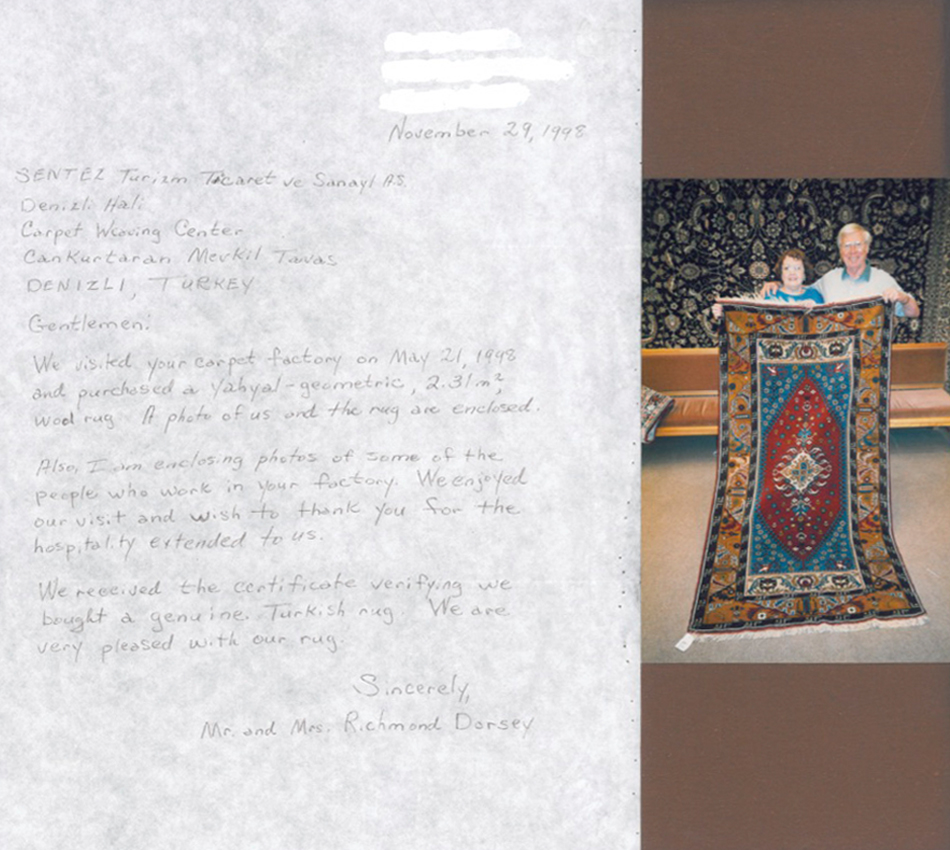 November 29, 1998
SENTEZ Turizm Ticaret ve Sanayl A.S.
Denizli Hali
Carpet Weaving Center
Cankurtaran Mevkil Tavas
DENIZLI, TURKEY
Gentlemen:
We visited your carpet factory on May 21, 1998
and purchased a Yahyal-geometric, 2.31 m²,
wool rug. A photo of us and the rug are enclosed.
Also, I am enclosing photos of some of the
people who work in your factory. We enjoyed
our visit and wish to thank you for the
hospitality extended to us.
We received the certificate verifying we
bought a genuine Turkish rug. We are
very pleased with our rug.
Sincerely,
Mr. and Mrs. Richmond Dorsey